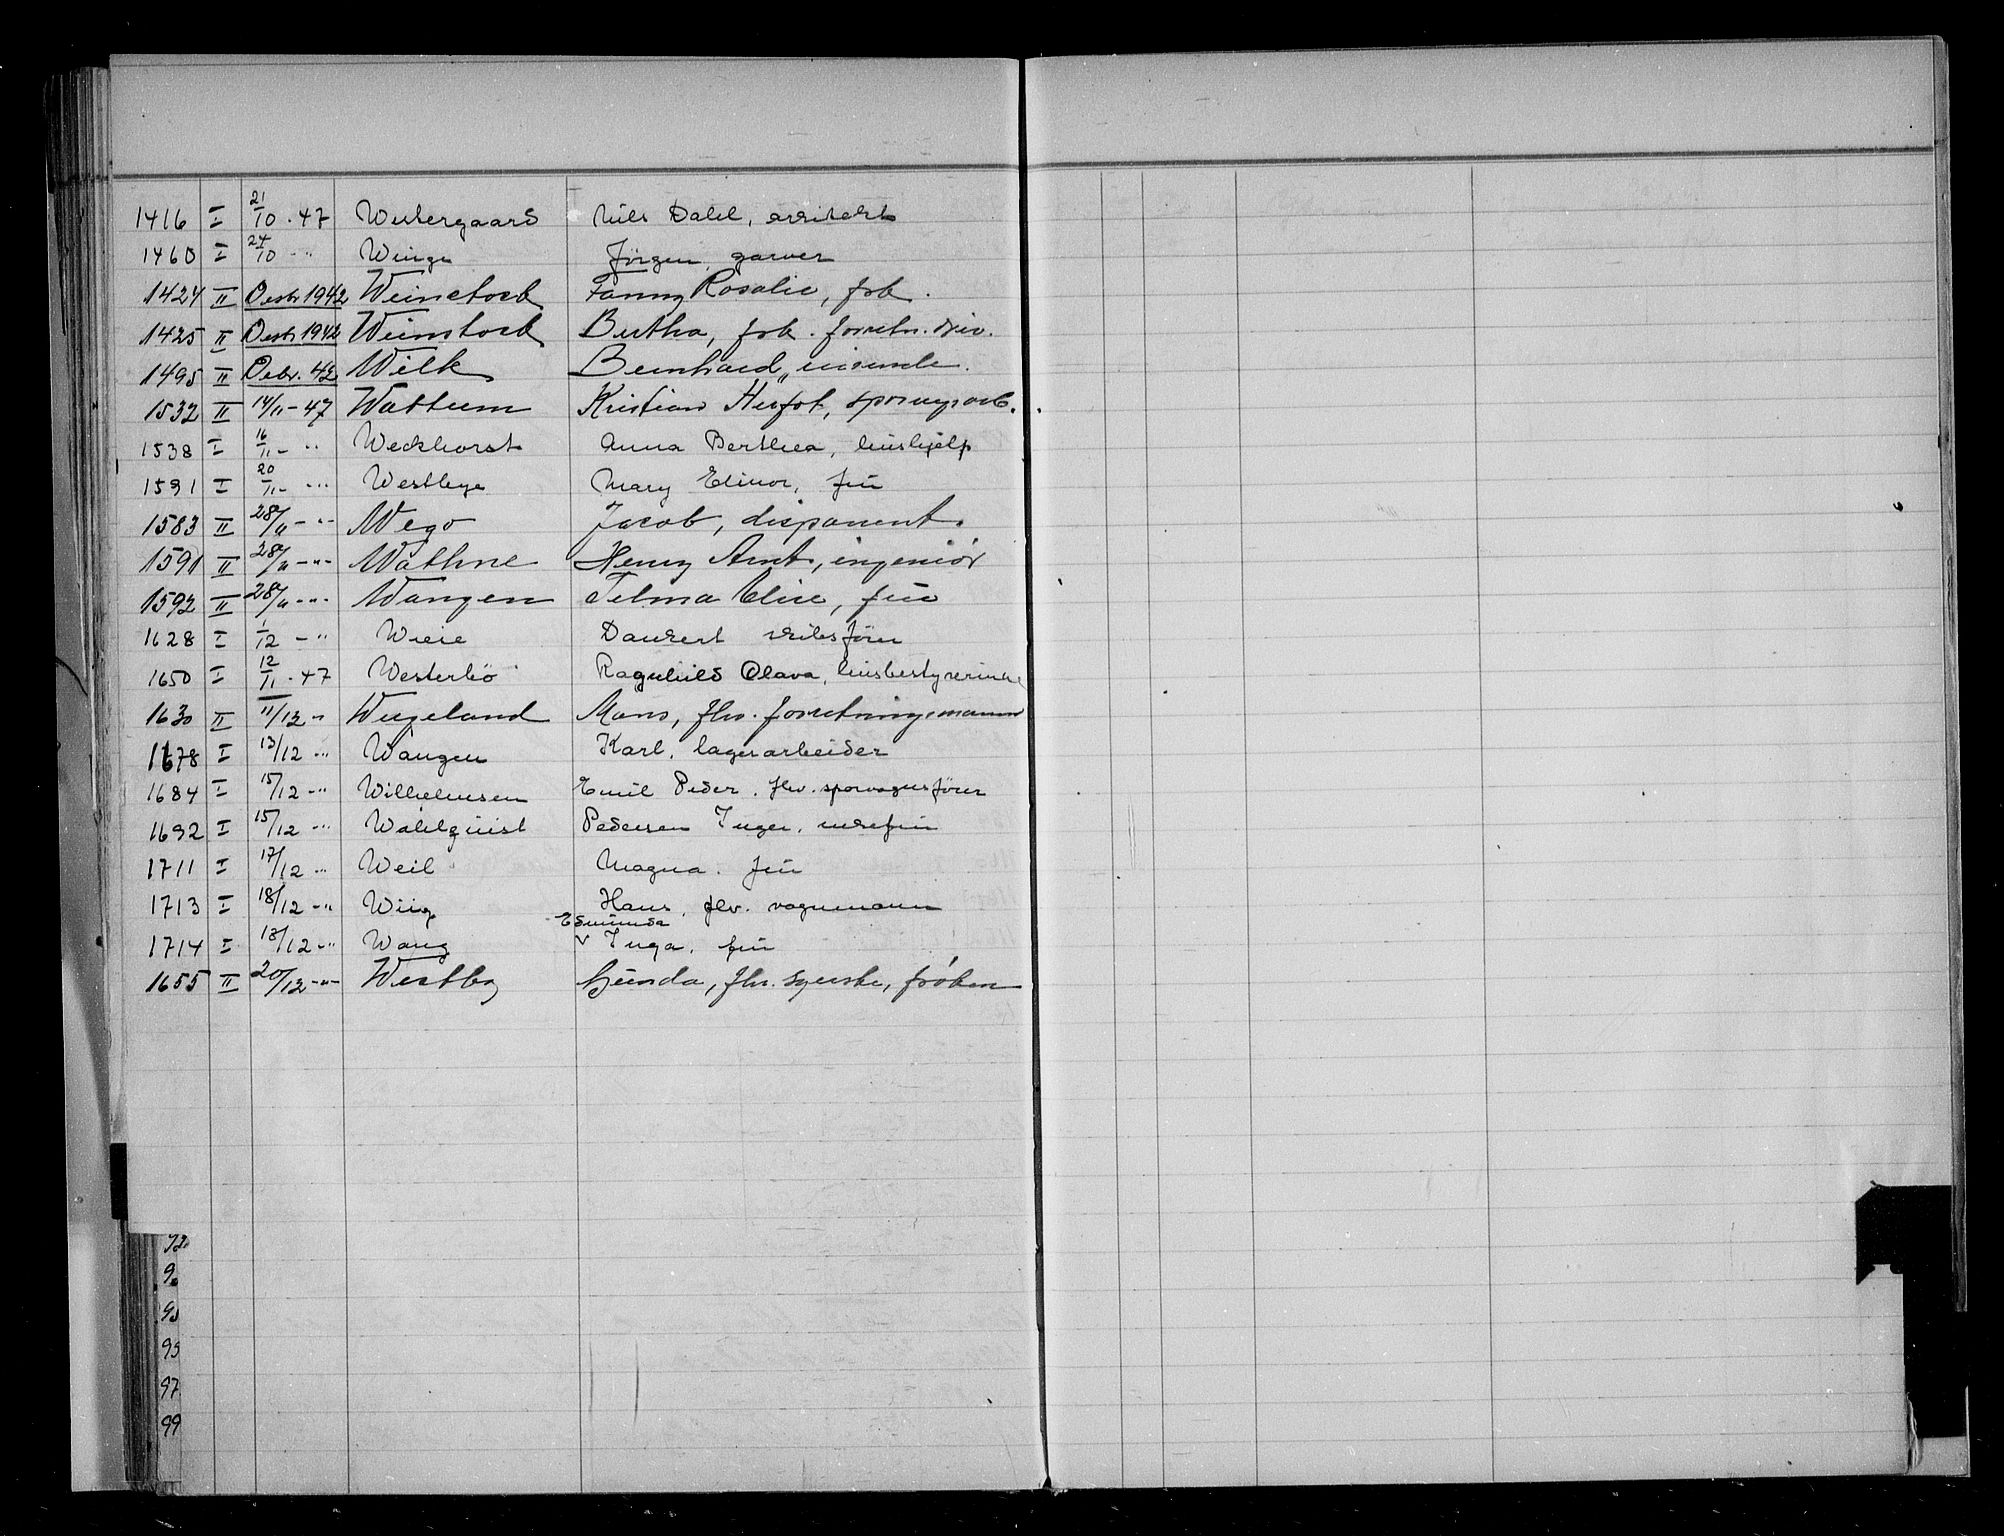 1416 I 21/10 - 47 Westergaard Nils Dahl, arkitekt
1460 I 24/10 - " Winge Jörgen, garver
1424 II Desbr 1942 Weinstock Fanny Rosalie, frk.
1425 II Desbr 1942 Weinstock Bertha, frk. forretn. driv.
1495 II Debr. 42 Wilk Bernhard,
1532 II 14/11 - 47 Wattum Kristian Herfot, sporvgsarb.
1538 I 16/11 - " Weckhorst Anna Berthea, hushjelp
1591 I 20/11 - " Westbye Mary Elinor, fru
1583 II 28/11 - " Wego Jacob, disponent.
1591 II 28/11 - " Wathne Henry Arnt, ingeniör
1592 II 28/11 - " Wangen Telma Elise, frue
1628 I 1/12 - " Wieie Dankert skibsförer
1650 I 12/11 - 47 Westerbö Ragnhild Olava, husbestyrerinne
1630 II 11/12 " Wegeland Mons, fhv. forretningsmann
1678 I 13/12 " Wangen Karl, lagerarbeider
1684 I 15/12 - " Wilhelmsen Emil Peder, fhv. sporvognsförer
1692 I 15/12 - " Wahlquist Pedersen Inger, enkefru
1711 I 17/12 " Weil Magna, fru
1713 I 18/12 - " Wiig Hans, fhv. vognmann
Edmunda
1714 I 18/12 - " Wang v Inga, fru
1655 II 20/12 - " Westby Gunda, fhv. syerske, fröken
92
9
95
97
99